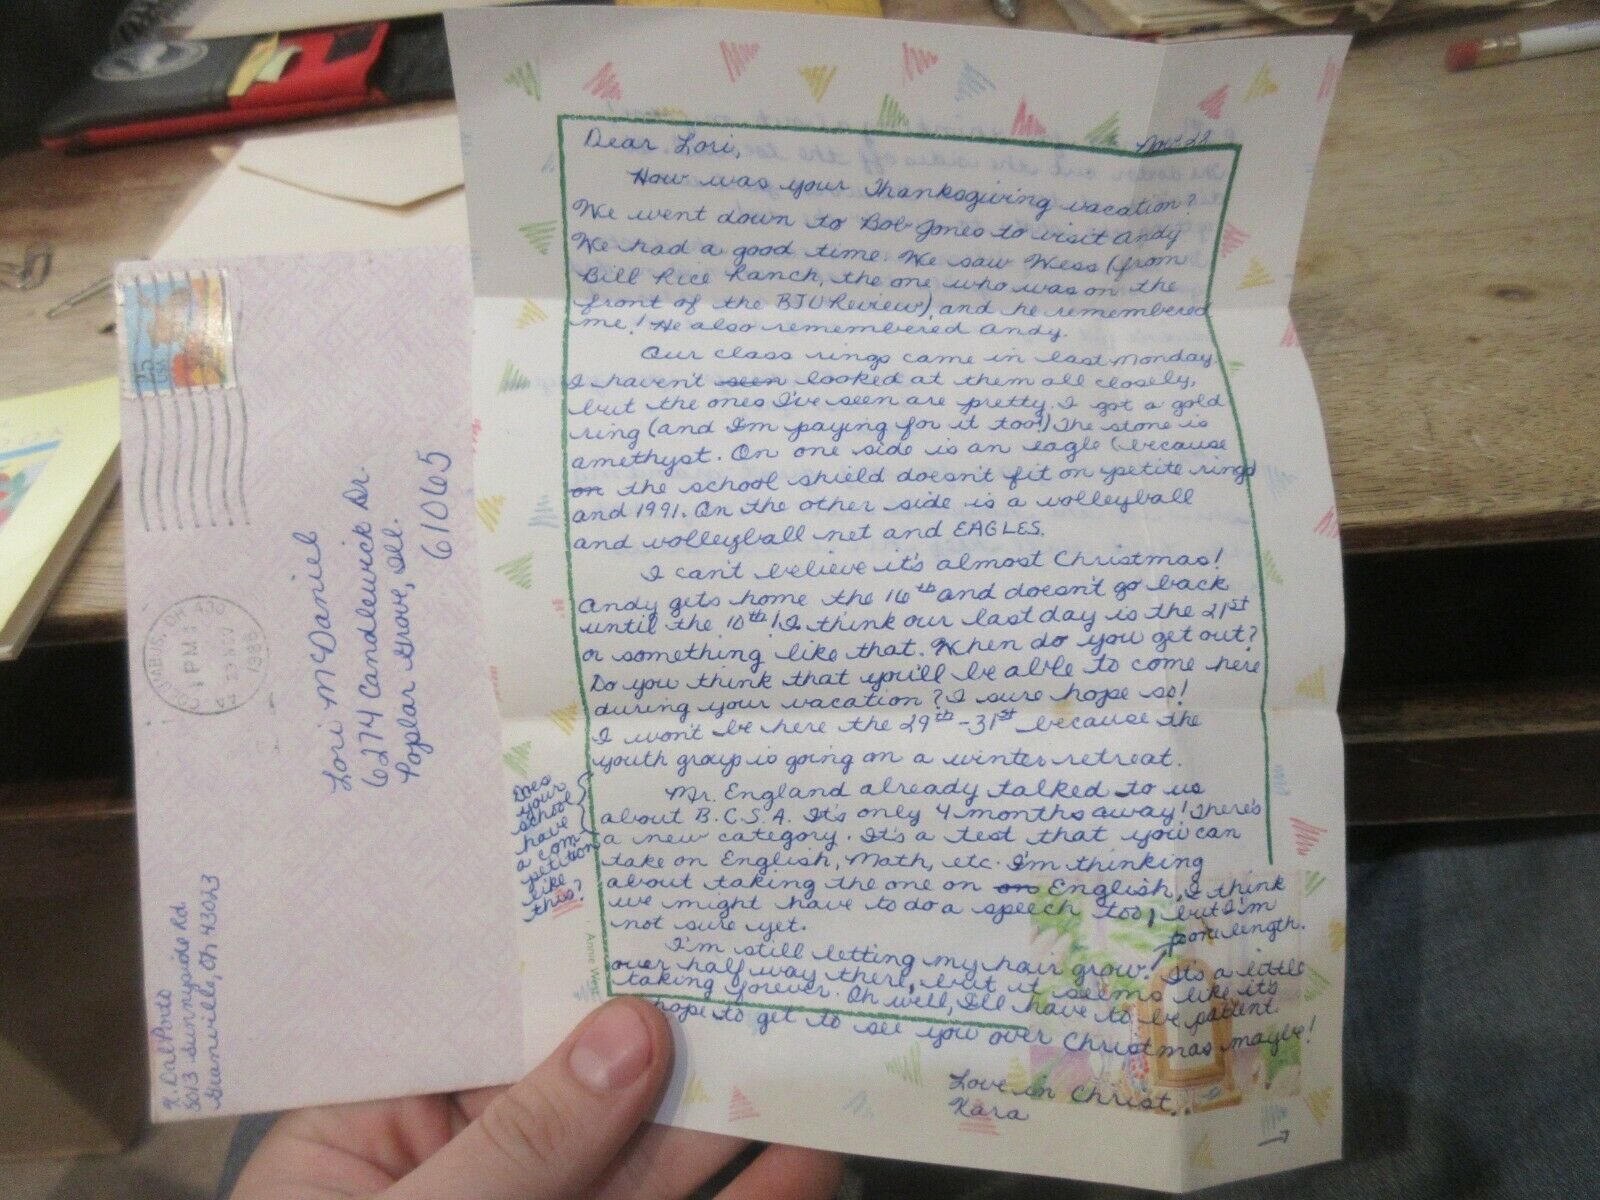 Dear Lori,
Nov. 27
How was your Thanksgiving vacation?
We went down to Bob Jones to visit Andy
We had a good time. We saw Wess (from
Bill Rice Ranch, the one who was on the
front of the BJU Review), and he remembered
me! He also remembered Andy.
Our class rings came in last Monday.
I haven't seen looked at them all closely,
but the ones I've seen are pretty. I got a gold
ring (and I'm paying for it too!) The stone is
amethyst. On one side is an eagle (because
on the school shield doesn't fit on petite rings)
and 1991. On the other side is a volleyball
and volleyball net and EAGLES.
I can't believe it's almost Christmas!
Andy gets home the 16th and doesn't go back
until the 10th! I think our last day is the 21st
or something like that. When do you get out?
Do you think that you'll be able to come here
during your vacation? I sure hope so!
I won't be here the 29th-31st because the
youth group is going on a winter retreat.
Mr. England already talked to us
about B.C.S.A. It's only 4 months away! There's
a new category. It's a test that you can
take on English, Math, etc. I'm thinking
about taking the one on on English, I think
we might have to do a speech too, but I'm
not sure yet.
I'm still letting my hair grow! It's a little
over half way there, but it seems like it's
taking forever. Oh well, I'll have to be patient.
hope to get to see you over Christmas maybe!
Love in Christ,
Kara
Does
your
school
have
a com-
petition
like
this?
length.
Annie West
25
USA
COLUMBUS, OH 430
PM
29 NOV
Lori McDaniel
6274 Candlewick Dr.
Poplar Grove, Ill.
61065
K. DalPorto
5013 Sunnyside Rd.
Granville, Oh 43023